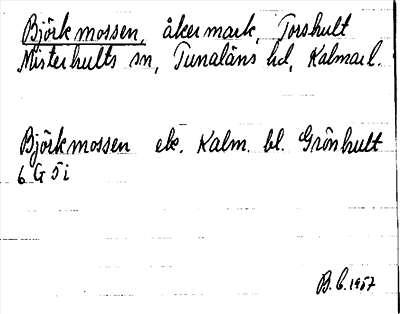 Björkmossen, åkermark, Torshult
Misterhults sn, Tunaläns hd, Kalmar l.
Björkmossen ek. Kalm. bl. Grönhult
6 G 5 i
B. C. 1957